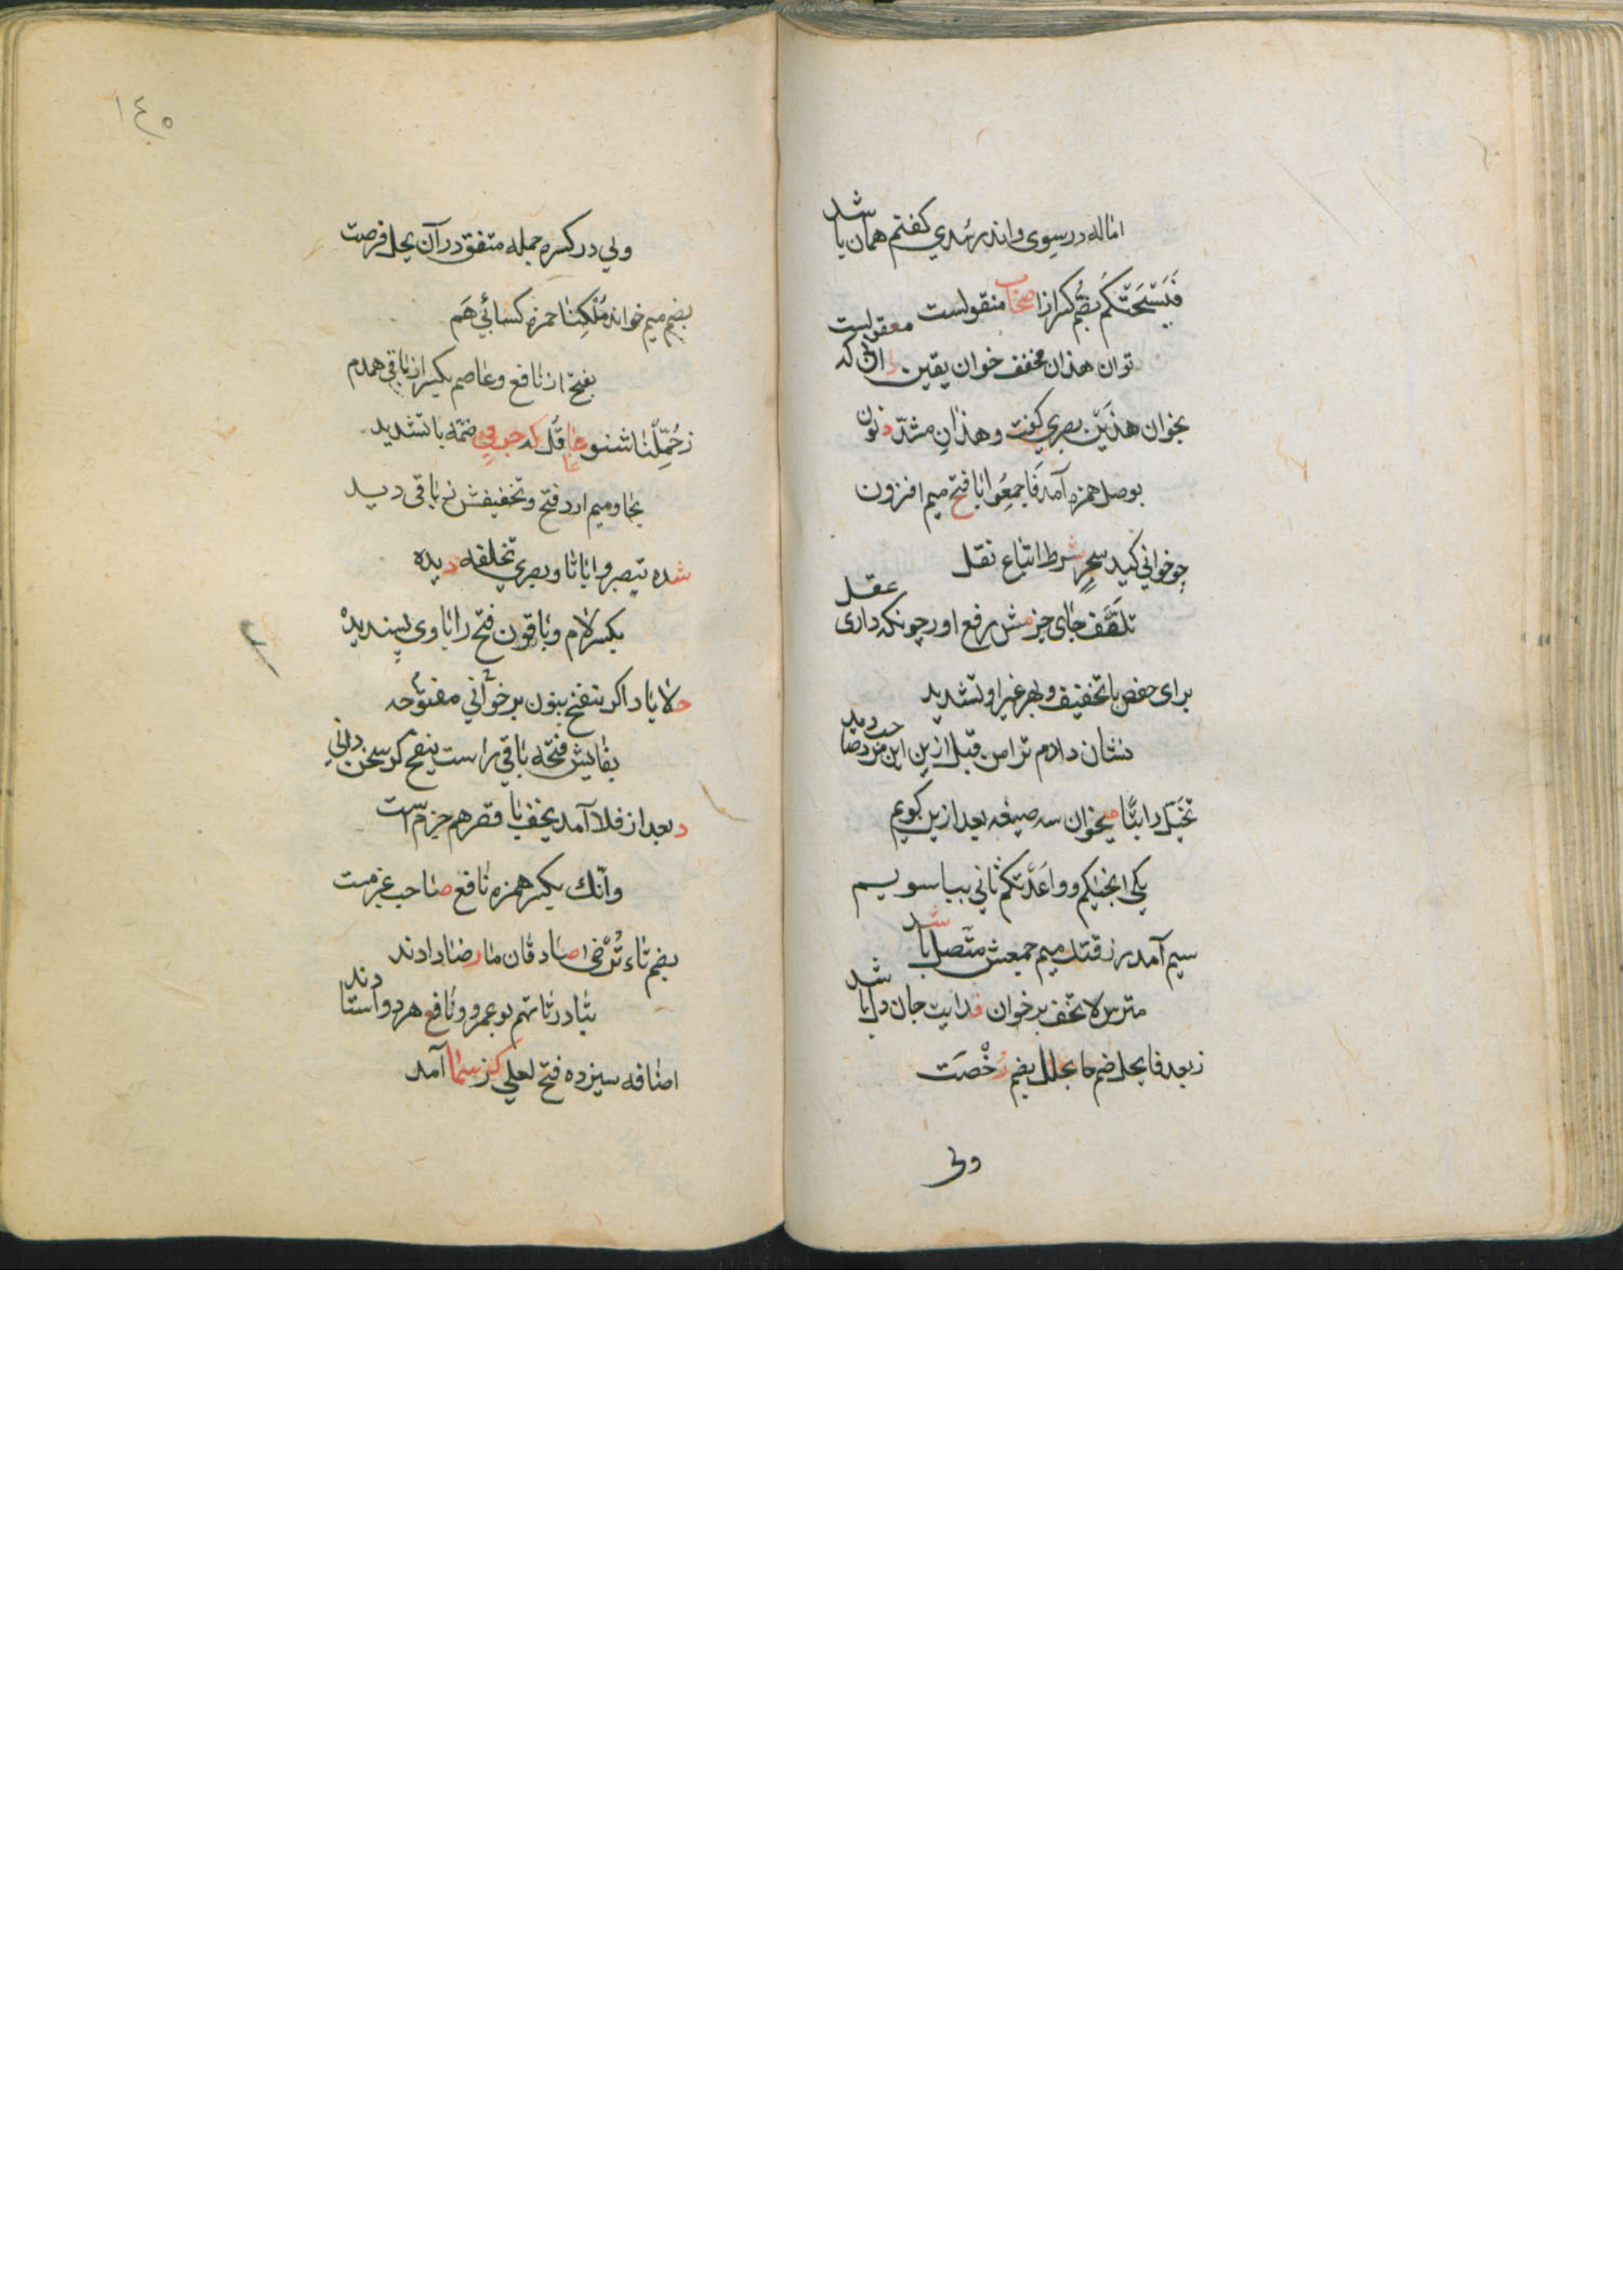 اماله در سوی واندر سُدي کفتم همان باشد
فَيُسْحِتَكُم بضُم کسر از اصحاب منقولست
توان هذان مخفف خوان یقین دان که معقولست
بخوان هذَیْن بصري کفت و هذانِ مشدّد نون
بوصل همزه آمد فَاجمَعُوا با فتح میم افزون
چو خواني کید سحرٍ شرط اتباع نقل
تلقَّف جای جزمش رفع اور چونکه داری عقل
برای حفص با تخفیف و بهر غیر او تشدید
نشان دادم ترا من قبل ازین این مرد
تخیّل را بتا میخوان سه صیغه بعد ازین کویم
یکی انجیتکم وواعَدتکم ثاني بیا سویم
سیم آمد رزقتك میم جمعش متّصل باشد
مترس لا تخف برخوان فدایت جان دل باشد
ز بعد فا یحل ضم حا یحلل بضم رُخْصَت
ولي
١٤٥
ولي در کسره جمله متفق در آن یحل فرصت
بضم میم خواند مُلکِنا حمزه کسائي هَم
بفتح از نافع و عاصم بکسر از باقي همدم
ز حُمِّلْنا شنو قُل که ضمّه با تشدید
بحا و میم ارد فتح و تخفیفش ز باقی دید
شده تبصروا با تا و بصري تخلفه دیده
بکسر لام و باقون فتح را با وی پسندیده
حلا یا را اکر ننفخ بنون برخواني مفتوحه
بقایش فتحه باقي راست ینفخ کر سخن داني
د بعد از فلا آمد یخف با قصر هم جزم است
وانّك بکسر همزه نافع صاحب عزمست
بضم تاء تُرْضی صادقان ما رضا دادند
بتا در تاتهم بوعمرو و نافع هر دو استادند
اضافه سیزده فتح لعلي کز سما آمد